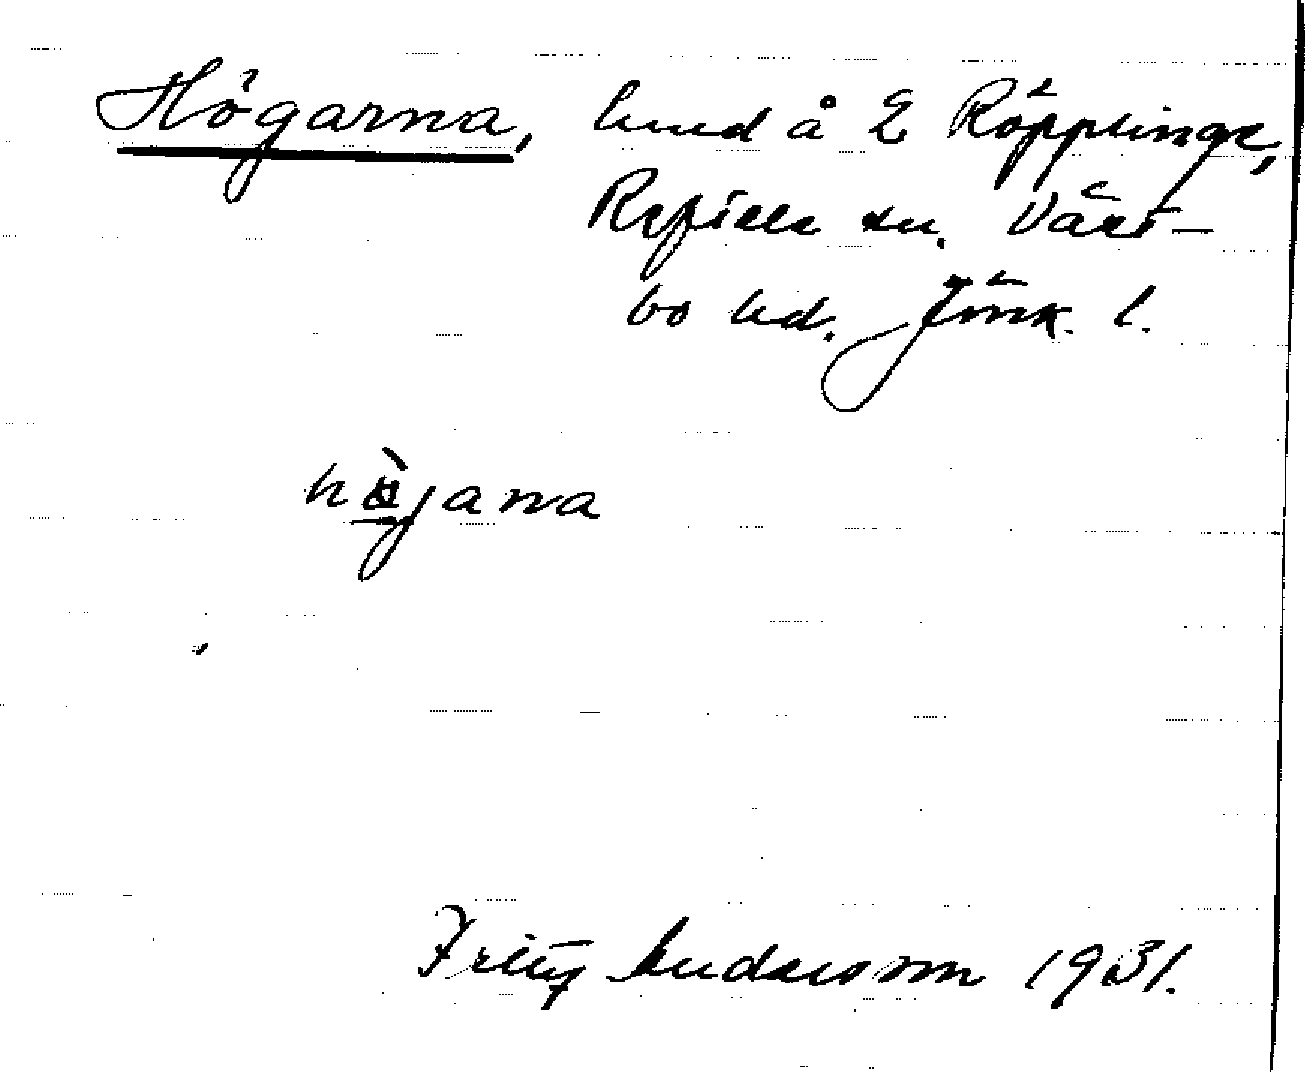 Högarna, lund å 2 Röpplinge,
Reftele sn. Väst-
bo hd. Jönk. l.
högana
Fritz Andersson 1931.